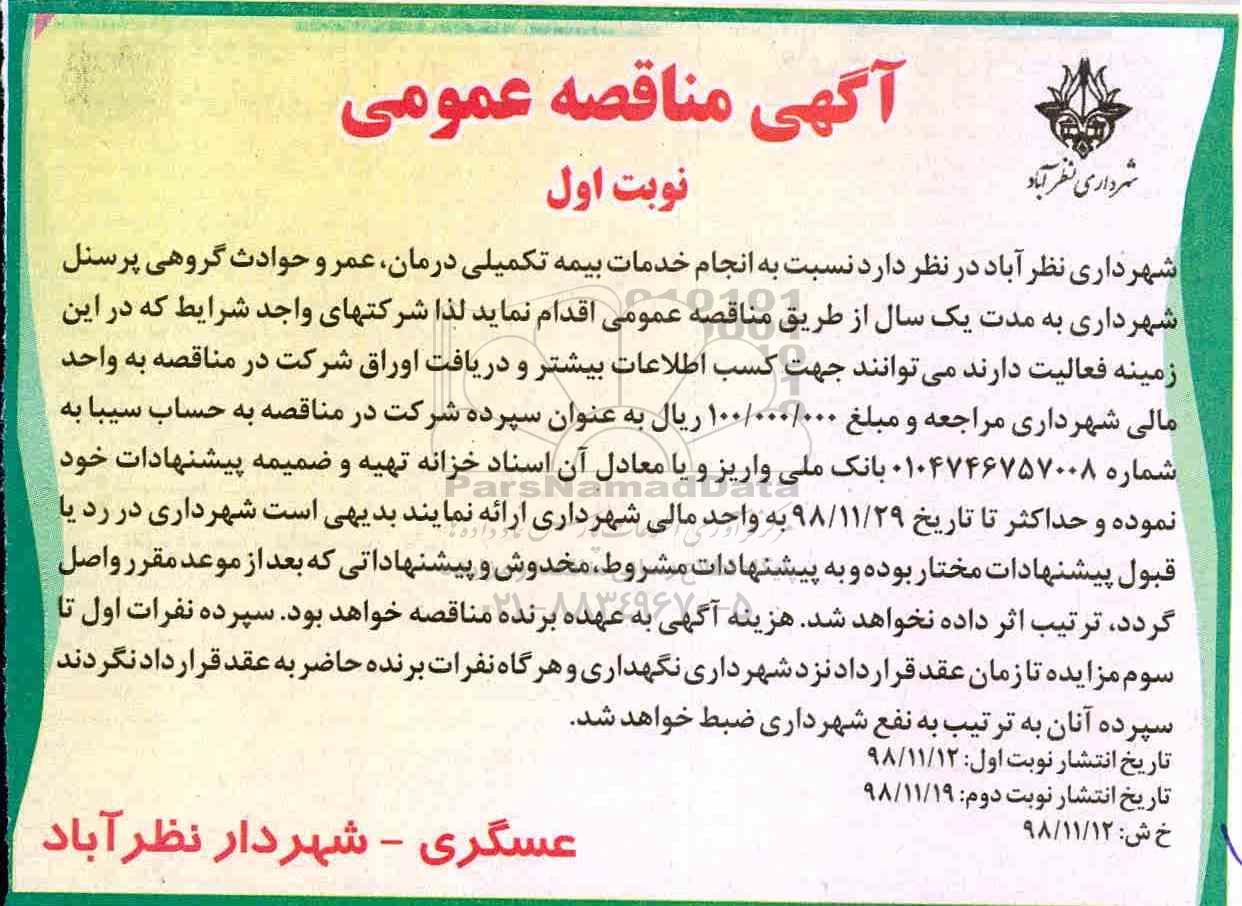 آگهی مناقصه عمومی
شهرداری نظرآباد
نوبت اول
شهرداری نظر آباد در نظر دارد نسبت به انجام خدمات بیمه تکمیلی درمان، عمر و حوادث گروهی پرسنل
شهرداری به مدت یک سال از طریق مناقصه عمومی اقدام نماید لذا شرکتهای واجد شرایط که در این
زمینه فعالیت دارند می‌توانند جهت کسب اطلاعات بیشتر و دریافت اوراق شرکت در مناقصه به واحد
مالی شهرداری مراجعه و مبلغ ۱۰۰/۰۰۰/۰۰۰ ریال به عنوان سپرده شرکت در مناقصه به حساب سیبا به
شماره ۰۱۰۴۷۴۶۷۵۷۰۰۸ بانک ملی واریز و یا معادل آن اسناد خزانه تهیه و ضمیمه پیشنهادات خود
نموده و حداکثر تا تاریخ ۹۸/۱۱/۲۹ به واحد مالی شهرداری ارائه نمایند بدیهی است شهرداری در رد یا
قبول پیشنهادات مختار بوده و به پیشنهادات مشروط، مخدوش و پیشنهاداتی که بعد از موعد مقرر واصل
گردد، ترتیب اثر داده نخواهد شد. هزینه آگهی به عهده برنده مناقصه خواهد بود. سپرده نفرات اول تا
سوم مزایده تا زمان عقد قرارداد نزد شهرداری نگهداری و هر گاه نفرات برنده حاضر به عقد قرارداد نگردند
سپرده آنان به ترتیب به نفع شهرداری ضبط خواهد شد.
تاریخ انتشار نوبت اول: ۹۸/۱۱/۱۲
تاریخ انتشار نوبت دوم: ۹۸/۱۱/۱۹
خ ش: ۹۸/۱۱/۱۲
عسگری - شهردار نظرآباد
ParsNamadData
۰۲۱-۸۸۳۴۹۶۷۰-۵